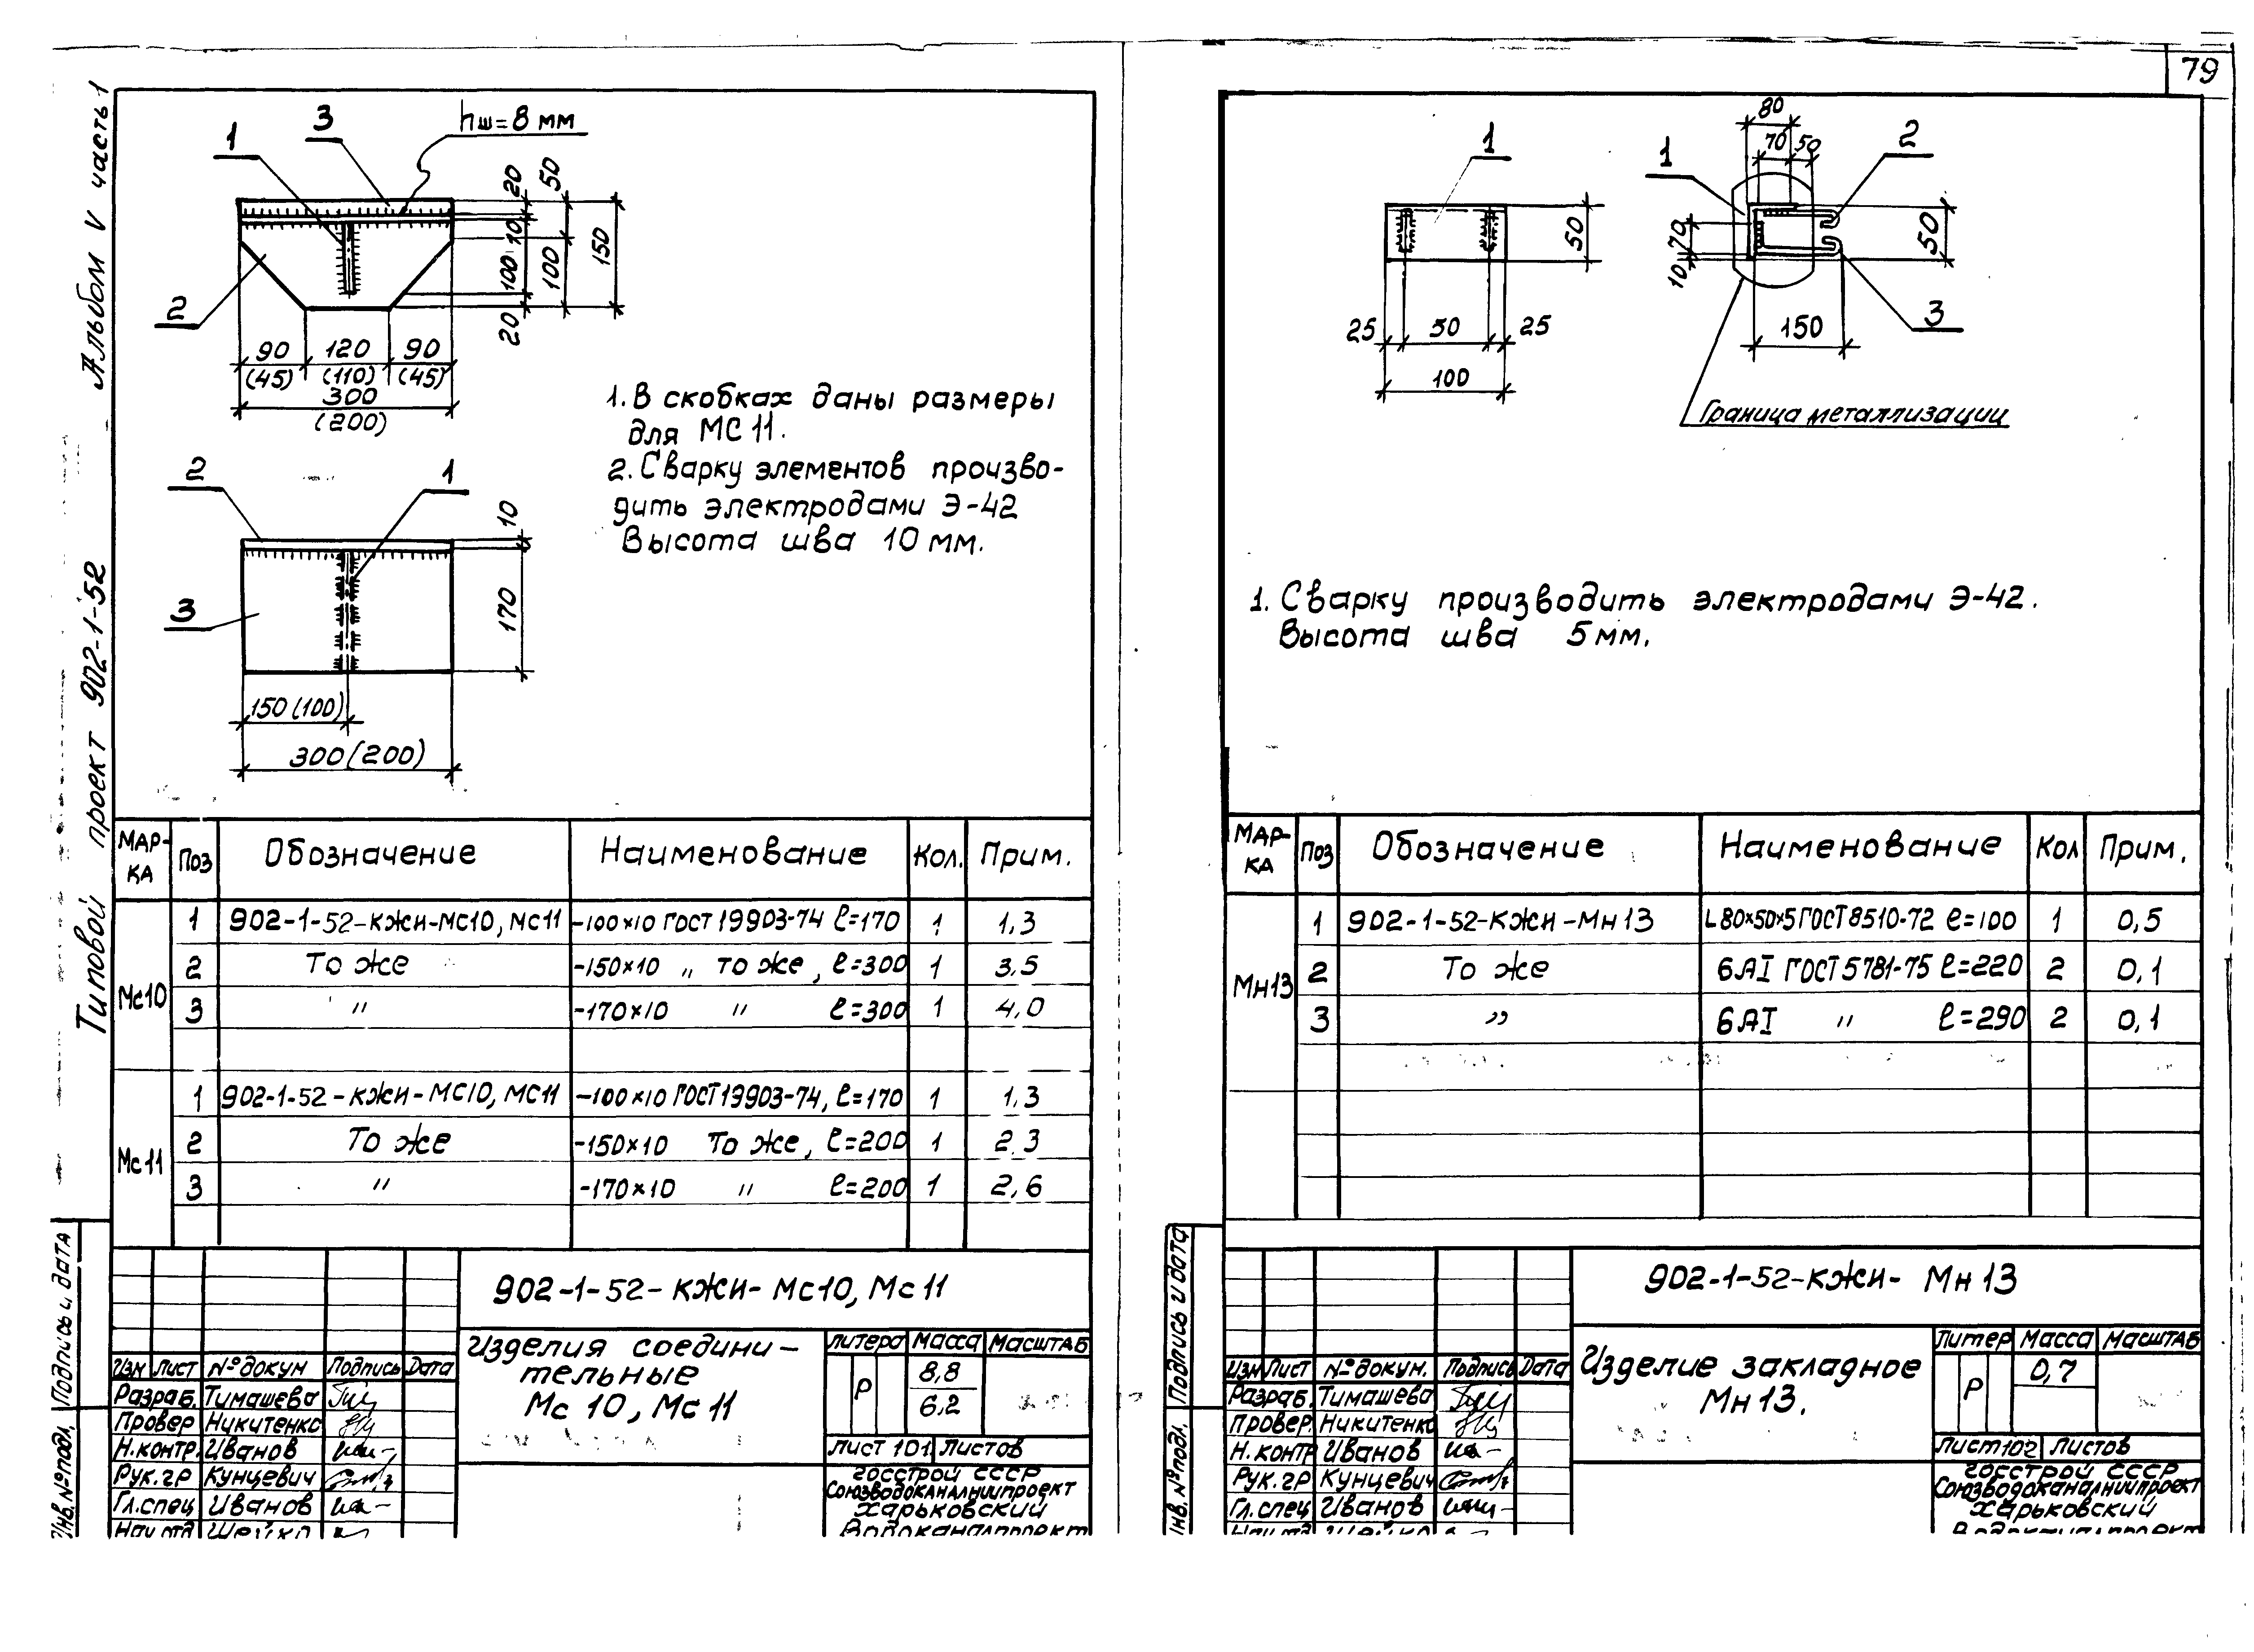 79
Альбом V часть 1
Типовой проект 902-1-52
Подпись и дата
Инв.№подл.
1
3
hш=8 мм
2
20
50
10
100
100
150
20
90
120
90
(45)
(110)
(45)
300
(200)
1. В скобках даны размеры
для МС 11.
2. Сварку элементов произво-
дить электродами Э-42
Высота шва 10 мм.
2
1
3
10
170
150 (100)
300 (200)
МАР-
КА
Поз
Обозначение
Наименование
Кол.
Прим.
Мс10
1 902-1-52-КЖИ-МС10, МС11 -100×10 ГОСТ 19903-74 ℓ=170 1 1,3
2 То же -150×10 " то же, ℓ=300 1 3,5
3 " -170×10 " ℓ=300 1 4,0
Мс11
1 902-1-52-КЖИ-МС10, МС11 -100×10 ГОСТ 19903-74, ℓ=170 1 1,3
2 То же -150×10 То же, ℓ=200 1 2,3
3 " -170×10 " ℓ=200 1 2,6
902-1-52-КЖИ-Мс10, Мс11
Изделия соедини-
тельные
Мс 10, Мс 11
Литера Масса Масштаб
Р
8,8
6,2
Лист 101 Листов
Госстрой СССР
Союзводоканалниипроект
Харьковский
Водоканалпроект
Изм Лист №докум Подпись Дата
Разраб. Тимашева
Провер Никитенко
Н.контр. Иванов
Рук.гр Кунцевич
Гл.спец Иванов
Нач.отд
1
50
25
50
25
100
80
70
50
1
2
70
10
50
150
3
Граница металлизации
1. Сварку производить электродами Э-42.
Высота шва 5 мм.
МАР-
КА
Поз
Обозначение
Наименование
Кол
Прим.
Мн13
1 902-1-52-КЖИ-Мн13 L80×50×5 ГОСТ 8510-72 ℓ=100 1 0,5
2 То же 6АI ГОСТ 5781-75 ℓ=220 2 0,1
3 " 6АI " ℓ=290 2 0,1
Подпись и дата
Инв.№подл.
902-1-52-КЖИ- Мн13
Изделие закладное
Мн13.
Литер Масса Масштаб
Р
0,7
Лист 102 Листов
Госстрой СССР
Союзводоканалниипроект
Харьковский
Водоканалпроект
Изм Лист №докум. Подпись Дата
Разраб. Тимашева
Провер. Никитенко
Н.контр Иванов
Рук.гр Кунцевич
Гл.спец Иванов
Нач.отд